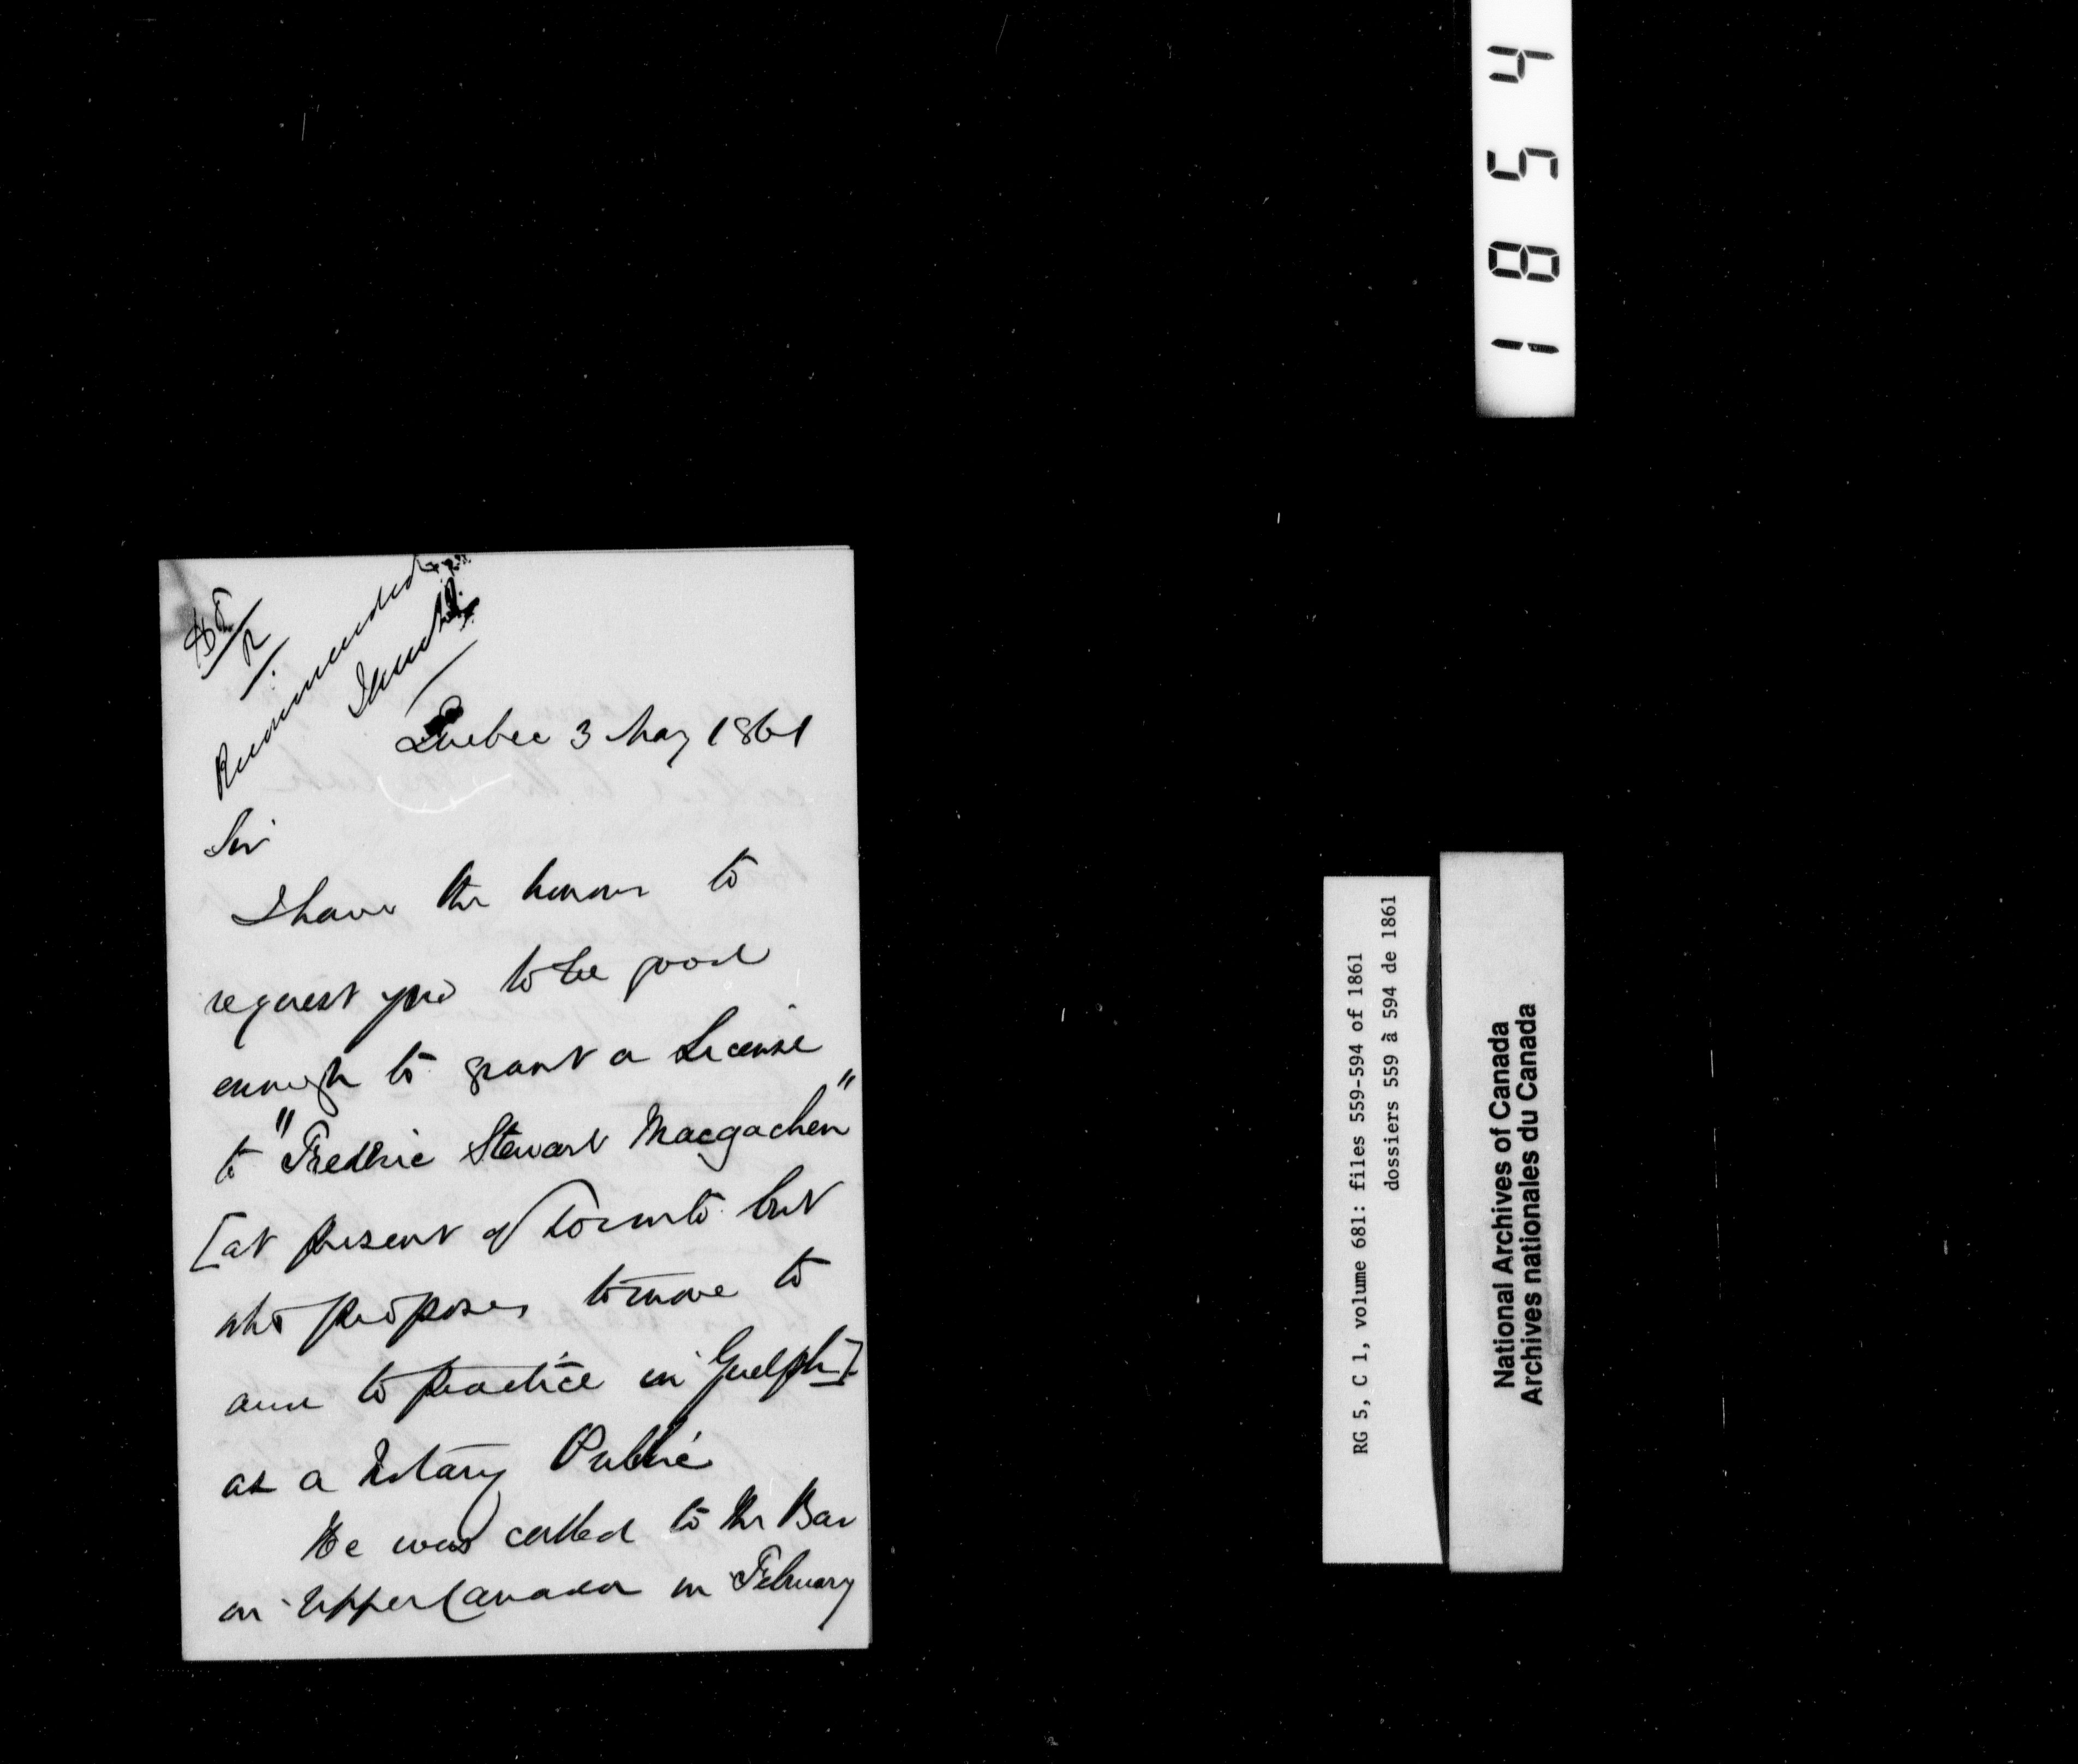 Recommended
Quebec 3 May 1861
Sir
I have the honour to
request you to be good
enough to grant a License
to "Fredric Stewart Macgachen"
[at present of Toronto but
who proposes to move to
and to practice in Guelph]
as a Notary Public
He was called to the Bar
in Upper Canada in February
1854
RG 5, C 1, volume 681: files 559-594 of 1861
dossiers 559 à 594 de 1861
National Archives of Canada
Archives nationales du Canada